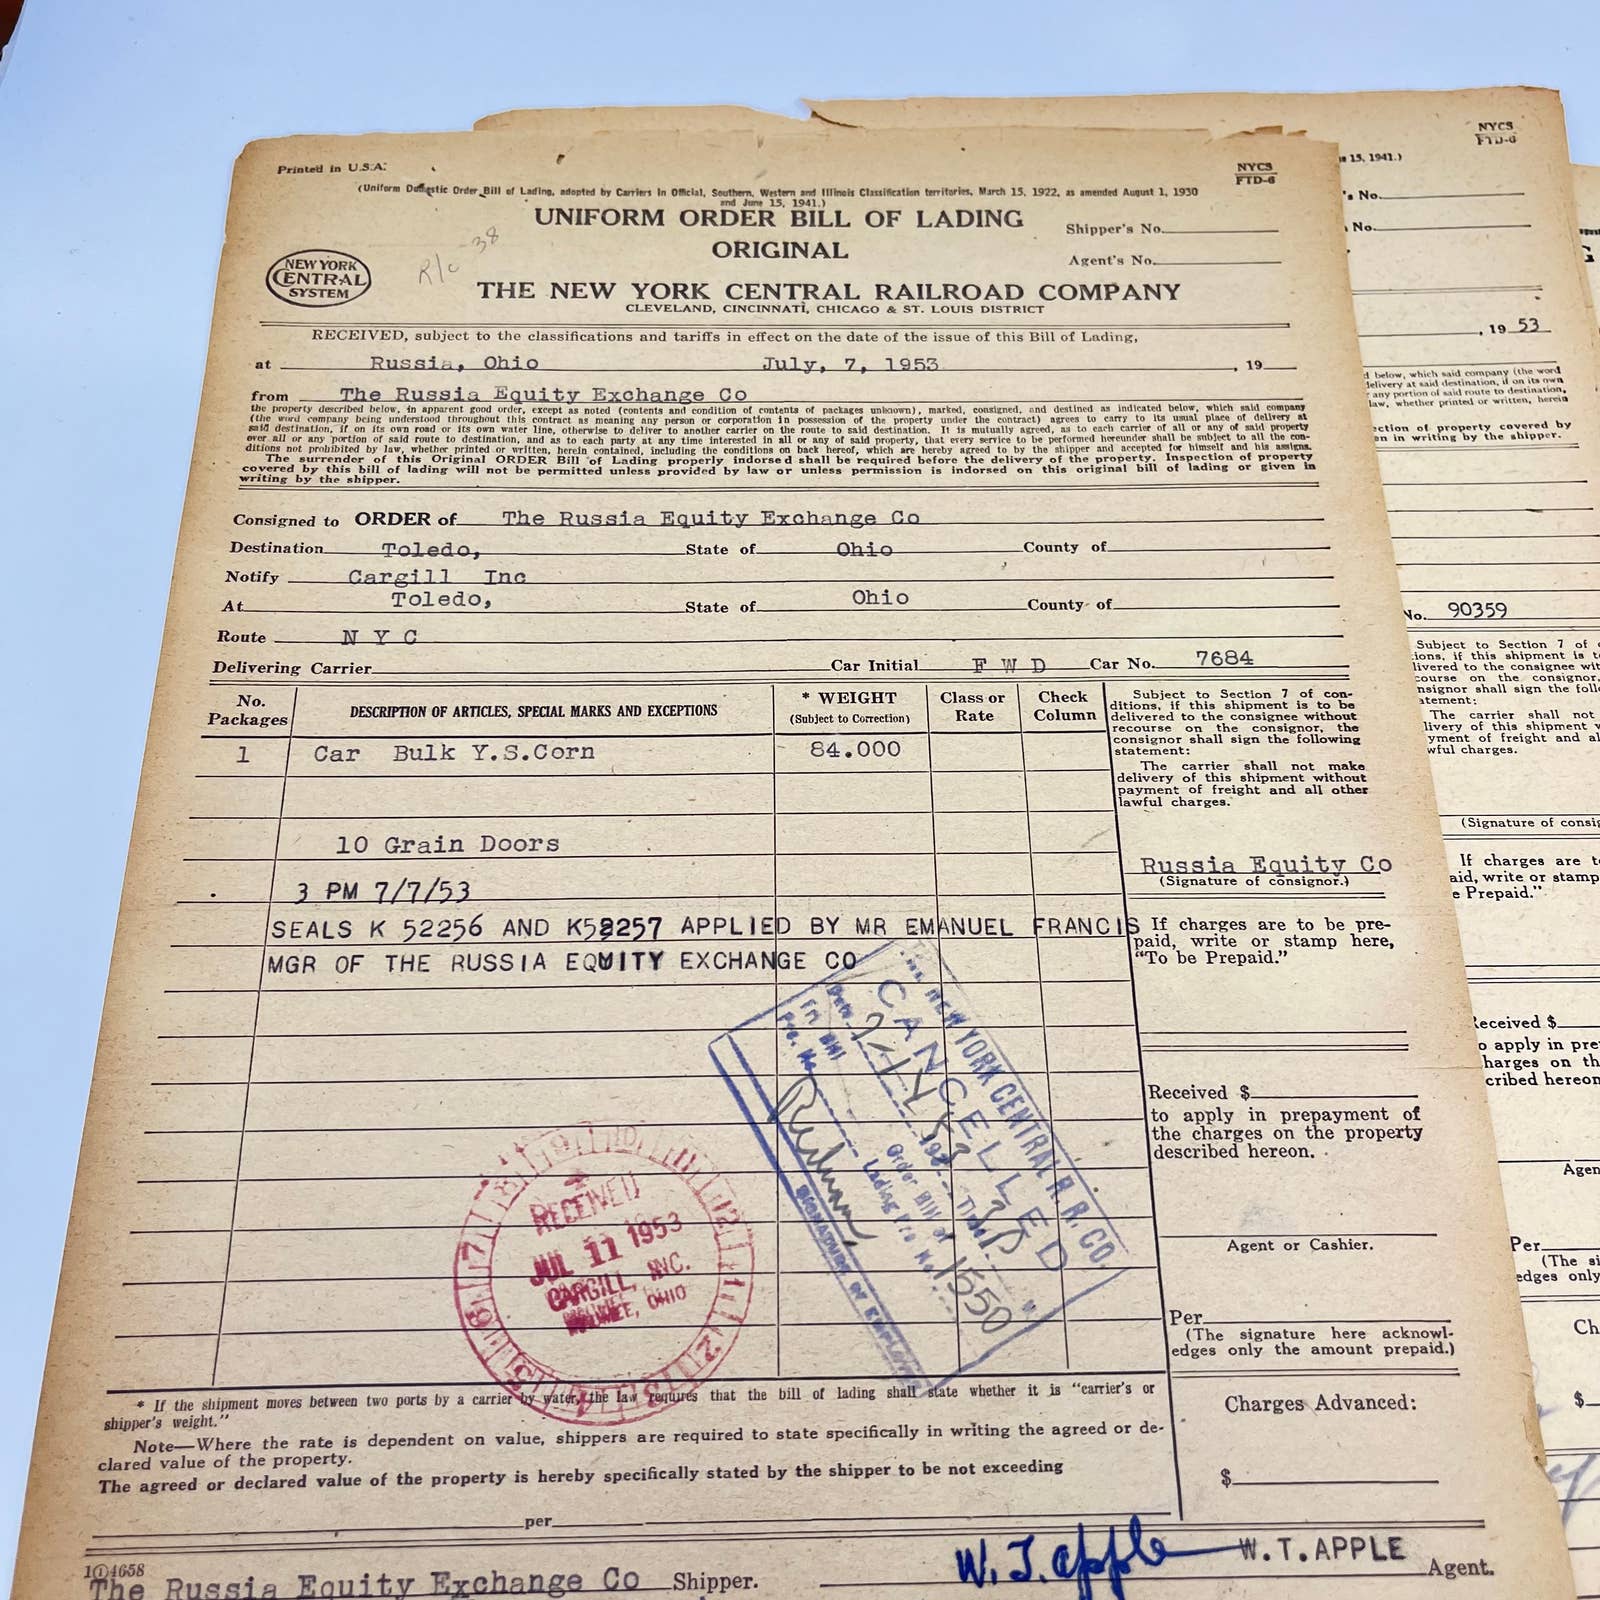 Printed in U.S.A.
NYCS
FTD-6
(Uniform Domestic Order Bill of Lading, adopted by Carriers in Official, Southern, Western and Illinois Classification territories, March 15, 1922, as amended August 1, 1930
and June 15, 1941.)
UNIFORM ORDER BILL OF LADING
ORIGINAL
Shipper's No.
Agent's No.
R/c 38
NEW YORK
CENTRAL
SYSTEM
THE NEW YORK CENTRAL RAILROAD COMPANY
CLEVELAND, CINCINNATI, CHICAGO & ST. LOUIS DISTRICT
RECEIVED, subject to the classifications and tariffs in effect on the date of the issue of this Bill of Lading,
at Russia, Ohio July, 7, 1953, 19
from The Russia Equity Exchange Co
the property described below, in apparent good order, except as noted (contents and condition of contents of packages unknown), marked, consigned, and destined as indicated below, which said company
(the word company being understood throughout this contract as meaning any person or corporation in possession of the property under the contract) agrees to carry to its usual place of delivery at
said destination, if on its own road or its own water line, otherwise to deliver to another carrier on the route to said destination. It is mutually agreed, as to each carrier of all or any of said property
over all or any portion of said route to destination, and as to each party at any time interested in all or any of said property, that every service to be performed hereunder shall be subject to all the con-
ditions not prohibited by law, whether printed or written, herein contained, including the conditions on back hereof, which are hereby agreed to by the shipper and accepted for himself and his assigns.
The surrender of this Original ORDER Bill of Lading properly indorsed shall be required before the delivery of the property. Inspection of property
covered by this bill of lading will not be permitted unless provided by law or unless permission is indorsed on this original bill of lading or given in
writing by the shipper.
Consigned to ORDER of The Russia Equity Exchange Co
Destination Toledo, State of Ohio County of
Notify Cargill Inc
At Toledo, State of Ohio County of
Route N Y C
Delivering Carrier Car Initial F W D Car No. 7684
No. Packages DESCRIPTION OF ARTICLES, SPECIAL MARKS AND EXCEPTIONS * WEIGHT (Subject to Correction) Class or Rate Check Column
1 Car Bulk Y.S.Corn 84.000
10 Grain Doors
3 PM 7/7/53
SEALS K 52256 AND K52257 APPLIED BY MR EMANUEL FRANCIS
MGR OF THE RUSSIA EQUITY EXCHANGE CO
Subject to Section 7 of con-
ditions, if this shipment is to be
delivered to the consignee without
recourse on the consignor, the
consignor shall sign the following
statement:
The carrier shall not make
delivery of this shipment without
payment of freight and all other
lawful charges.
Russia Equity Co
(Signature of consignor.)
If charges are to be pre-
paid, write or stamp here,
"To be Prepaid."
Received $
to apply in prepayment of
the charges on the property
described hereon.
Agent or Cashier.
Per
(The signature here acknowl-
edges only the amount prepaid.)
Charges Advanced:
$
THE NEW YORK CENTRAL R. R. CO.
CANCELLED
Date
Frt. Bill
Pro. No.
Order Bill of
Lading Pro No. 1550
SIGNATURE OF EMPLOYE
RECEIVED
JUL 11 1953
CARGILL, INC.
MAUMEE, OHIO
* If the shipment moves between two ports by a carrier by water, the law requires that the bill of lading shall state whether it is "carrier's or
shipper's weight."
Note—Where the rate is dependent on value, shippers are required to state specifically in writing the agreed or de-
clared value of the property.
The agreed or declared value of the property is hereby specifically stated by the shipper to be not exceeding
per
14658
The Russia Equity Exchange Co Shipper.
W. T. Apple W.T.APPLE Agent.
NYCS
FTD-6
15, 1941.)
's No.
No.
, 19 53
No. 90359